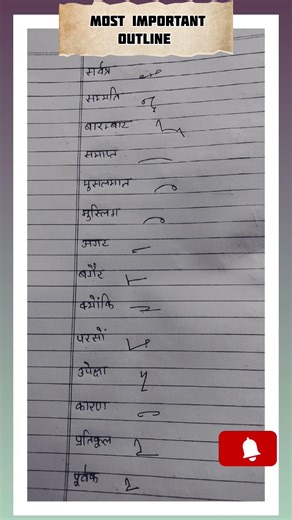 MOST IMPORTANT
OUTLINE
सर्वत्र
सम्मति
बारम्बार
समाप्त
मुसलमान
मुस्लिम
अगर
बगैर
क्योंकि
परसों
उपेक्षा
कारण
प्रतिकूल
पूर्वक